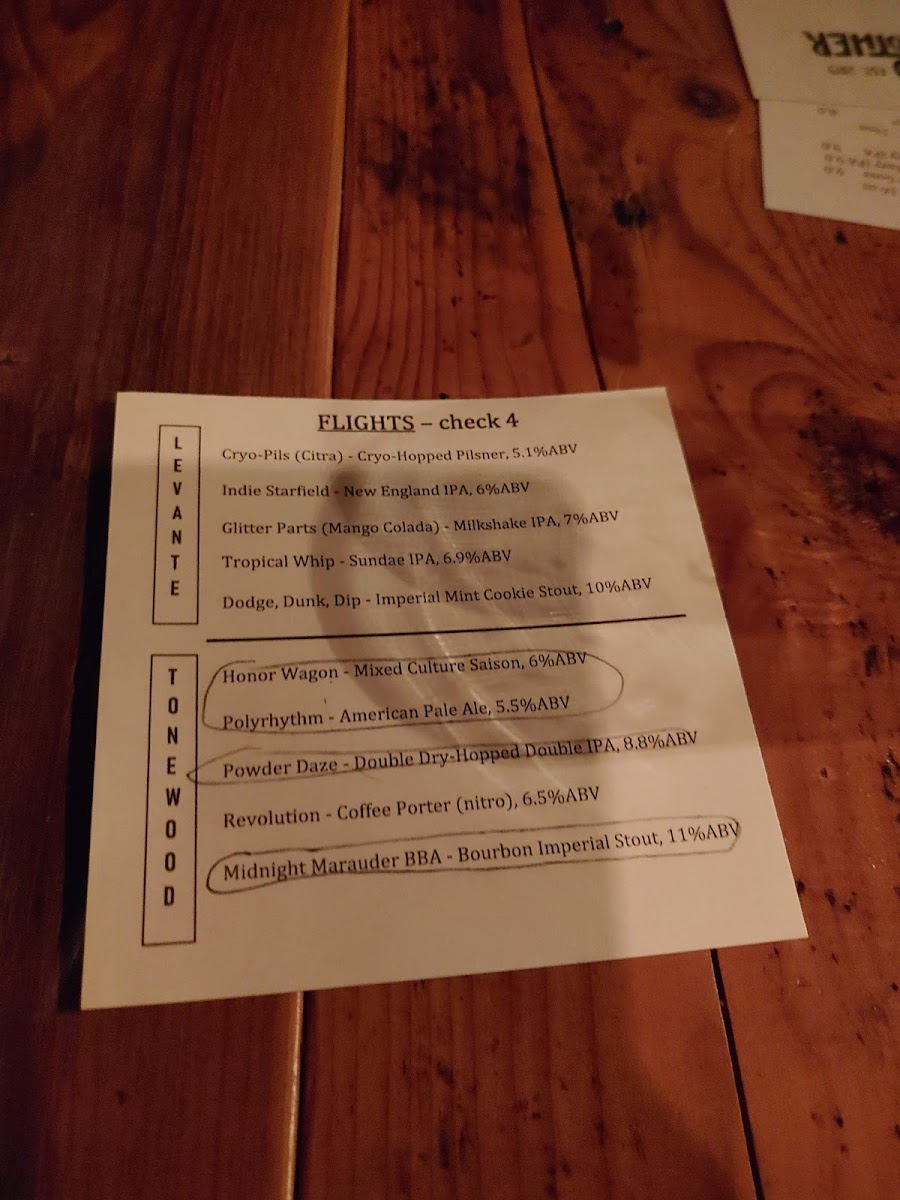 FLIGHTS – check 4
LEVANTE
Cryo-Pils (Citra) - Cryo-Hopped Pilsner, 5.1%ABV
Indie Starfield - New England IPA, 6%ABV
Glitter Parts (Mango Colada) - Milkshake IPA, 7%ABV
Tropical Whip - Sundae IPA, 6.9%ABV
Dodge, Dunk, Dip - Imperial Mint Cookie Stout, 10%ABV
TONEWOOD
Honor Wagon - Mixed Culture Saison, 6%ABV
Polyrhythm - American Pale Ale, 5.5%ABV
Powder Daze - Double Dry-Hopped Double IPA, 8.8%ABV
Revolution - Coffee Porter (nitro), 6.5%ABV
Midnight Marauder BBA - Bourbon Imperial Stout, 11%ABV